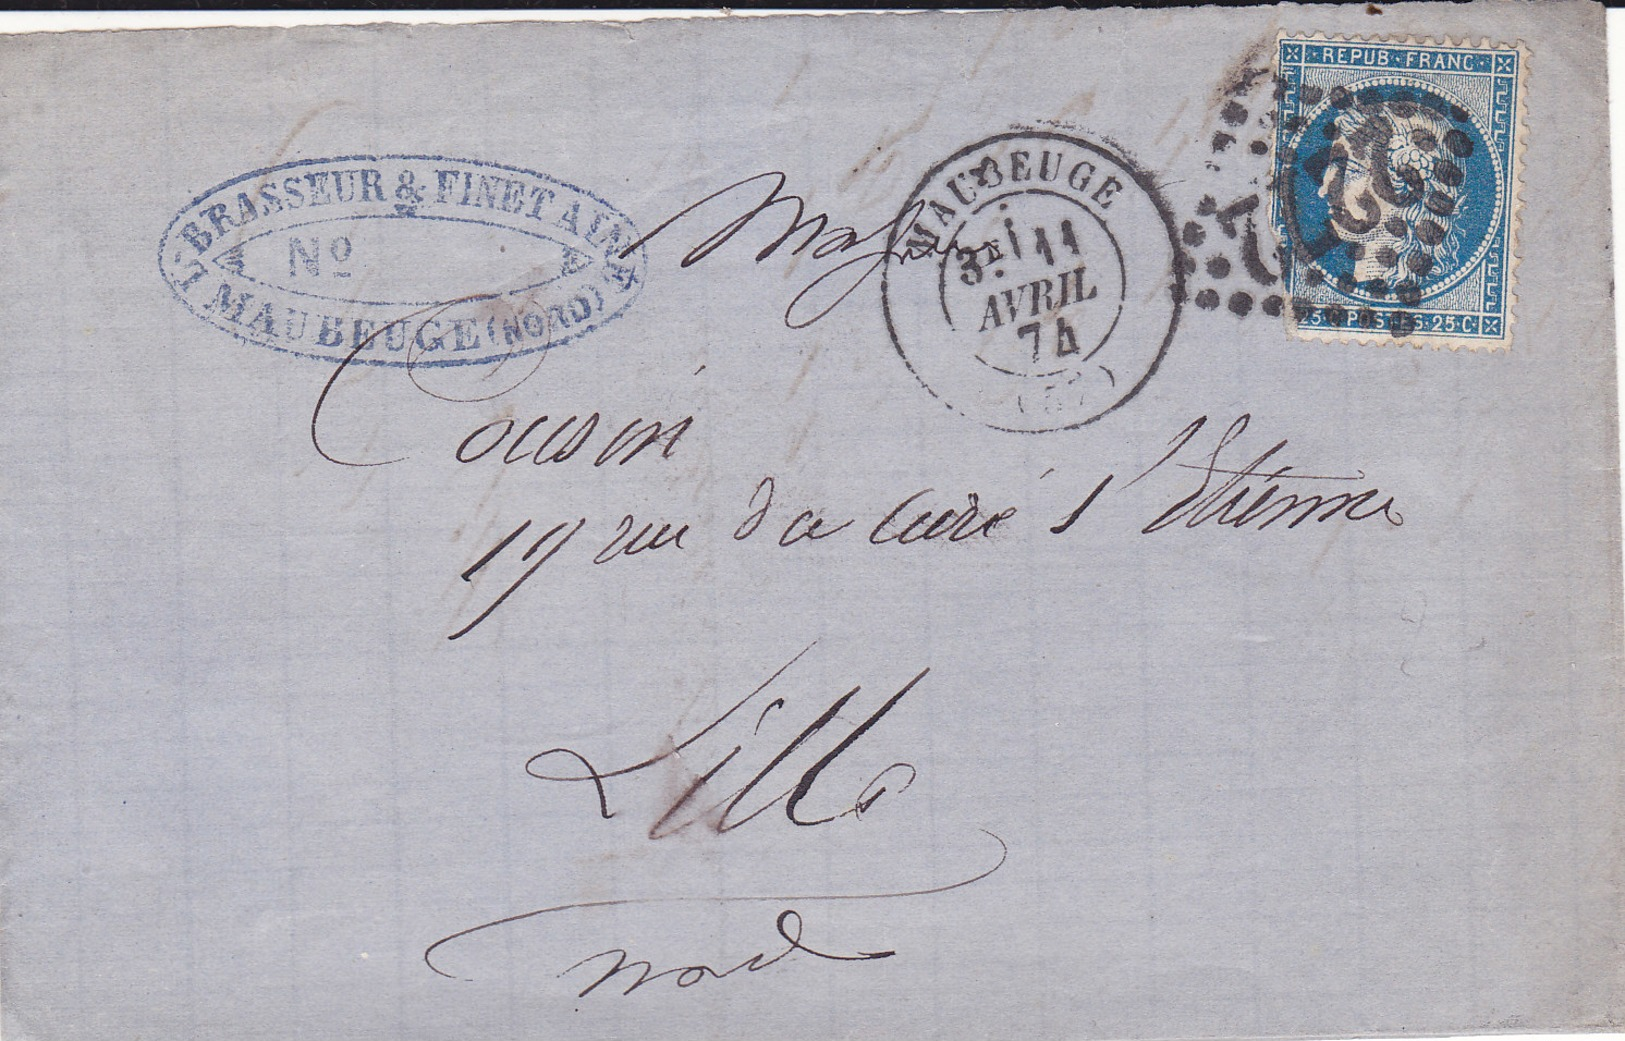 Ls BRASSEUR & FINET AINÉ
No
MAUBEUGE (NORD)
MAUBEUGE
3E 11
AVRIL
74
(57)
REPUB·FRANC·
25 C·POSTES·25·C·
Cousin
19 rue du Curé St Etienne
Lille
Nord